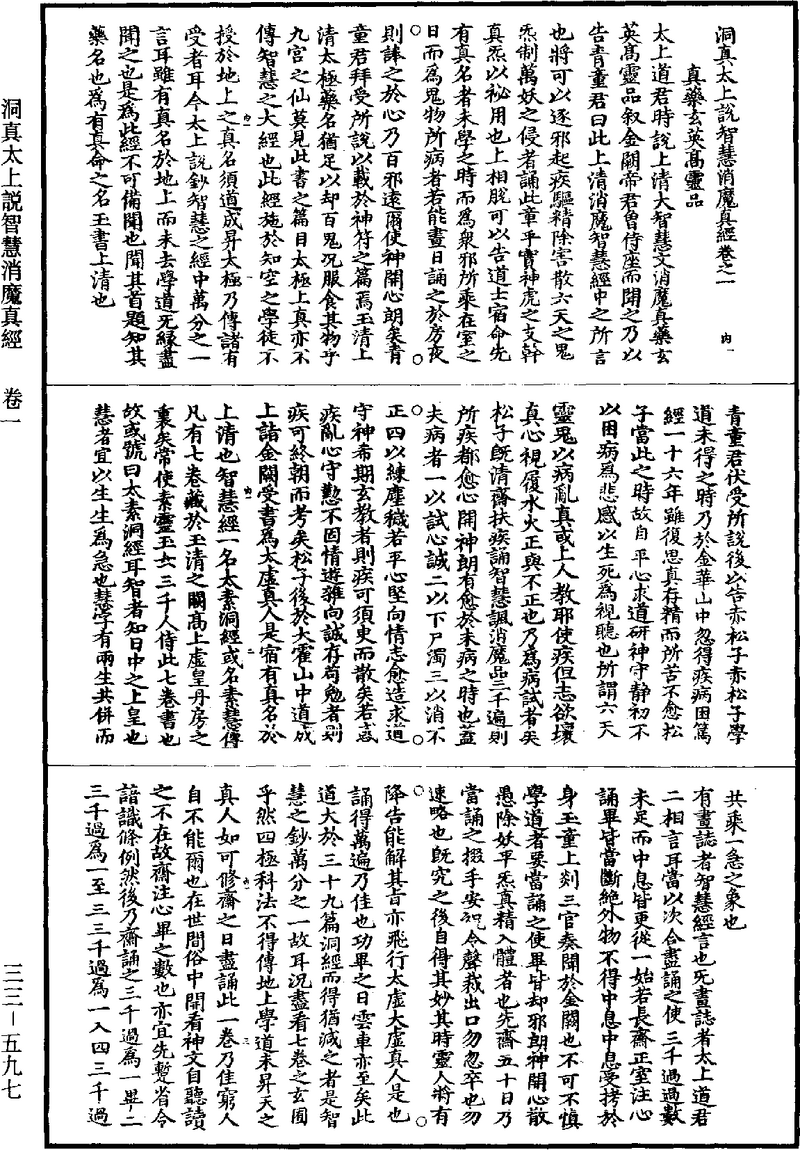 洞真太上說智慧消魔真經 卷一
三三—五九七
洞真太上說智慧消魔真經卷之一 內一
真藥玄英高靈品
太上道君時說上清大智慧文消魔真藥玄
英高靈品叙金闕帝君曽侍座而聞之乃以
告青童君曰此上清消魔智慧經中之所言
也將可以逐邪起疾驅精除害散六天之鬼
炁制萬妖之侵者誦此章乎實神虎之支幹
真炁以祕用也上相脫可以告道士宿命先
有真名者未學之時而為衆邪所乘在室之
日而為鬼物所病者若能晝日誦之於房夜
則誦之於心乃百邪遠爾使神開心朗矣青
童君拜受所說以載於神符之篇焉玉清上
清太極藥名猶足以却百鬼況服食其物乎
九宮之仙莫見此書之篇目太極上真亦不
傳智慧之大經也此經施於知空之學徒不
授於地上之真名須道成昇太極乃傳諸有
受者耳今太上說鈔智慧之經中萬分之一
言耳雖有真名於地上而未去學道死緣盡
聞之也是為此經不可備聞也聞其首題知其
藥名也為有真命之名玉書上清也
青童君伏受所說後以告赤松子赤松子學
道未得之時乃於金華山中忽得疾病困篤
經一十六年雖復思真存精而所苦不愈松
子當此之時故自平心求道研神守靜初不
以困病為悲感以生死為視聽也所謂六天
靈鬼以病亂真或上人教耶使疾但志欲壞
真心視履水火正與不正也乃為病試者矣
松子旣清齋扶疾誦智慧諷消魔品三千遍則
所疾都愈心開神朗有愈於未病之時也盖
夫病者一以試心誠二以下尸濁三以消不
正四以練塵穢若平心堅向情志愈造求迴
守神希期玄教者則疾可須臾而散矣若惑
疾亂心守懃不固情遊雜向誠存苟勉者則
疾可終朝而考矣松子後於大霍山中道成
上詣金闕受書為太虛真人是宿有真名於
上清也智慧經一名太素洞經或名素慧傳
凡有七卷藏於玉清之闕高上虛皇丹房之
裏矣常使素靈玉女三千人侍此七卷書也
故或號曰太素洞經耳智者知日中之上皇也
慧者宜以生生為急也慧字有兩生共併而
共乘一急之象也
有畫誌者智慧經言也死畫誌者太上道君
二相言耳當以次合盡誦之使三千過過數
未足而中息皆更從一始若長齋正室注心
誦畢皆當斷絶外物不得中息中息受拷於
身玉童上剡三官奏聞於金闕也不可不慎
學道者要當誦之使畢皆却邪朗神開心散
愚除妖平炁真精入體者也先齋五十日乃
當誦之掇手安祝令聲裁出口勿忽卒也勿
速略也旣究之後自得其妙其時靈人將有
降告能解其旨亦飛行太虛大虛真人是也
誦得萬遍乃佳也功畢之日雲車亦至矣此
道大於三十九篇洞經而得猶減之者是智
慧之鈔萬分之一故耳況盡看七卷之玄囿
乎然四極科法不得傳地上學道未昇天之
真人如可修齋之日盡誦此一卷乃佳窮人
自不能爾也在世間俗中開看神文自聽讀
之不在故齋注心畢之數也亦宜先蹔省令
諳識條例然後乃齋誦之三千過為一畢二
三千過為一至三三千過為一入四三千過